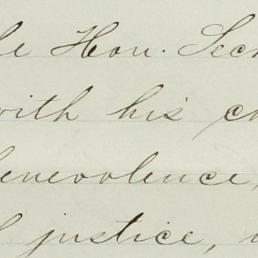 Hon. Sec
with his
benevolence,
justice,